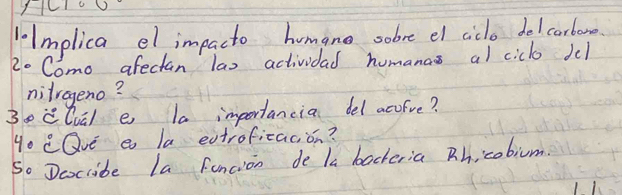 1. Implica el impacto humano sobre el ciclo del carbono.
2. Como afectan las actividad humanas al ciclo del
nitrogeno?
3. ¿Cuál es la importancia del acufre?
4. ¿Qué es la eutroficación?
5. Describe la función de la bacteria Rhicobium.